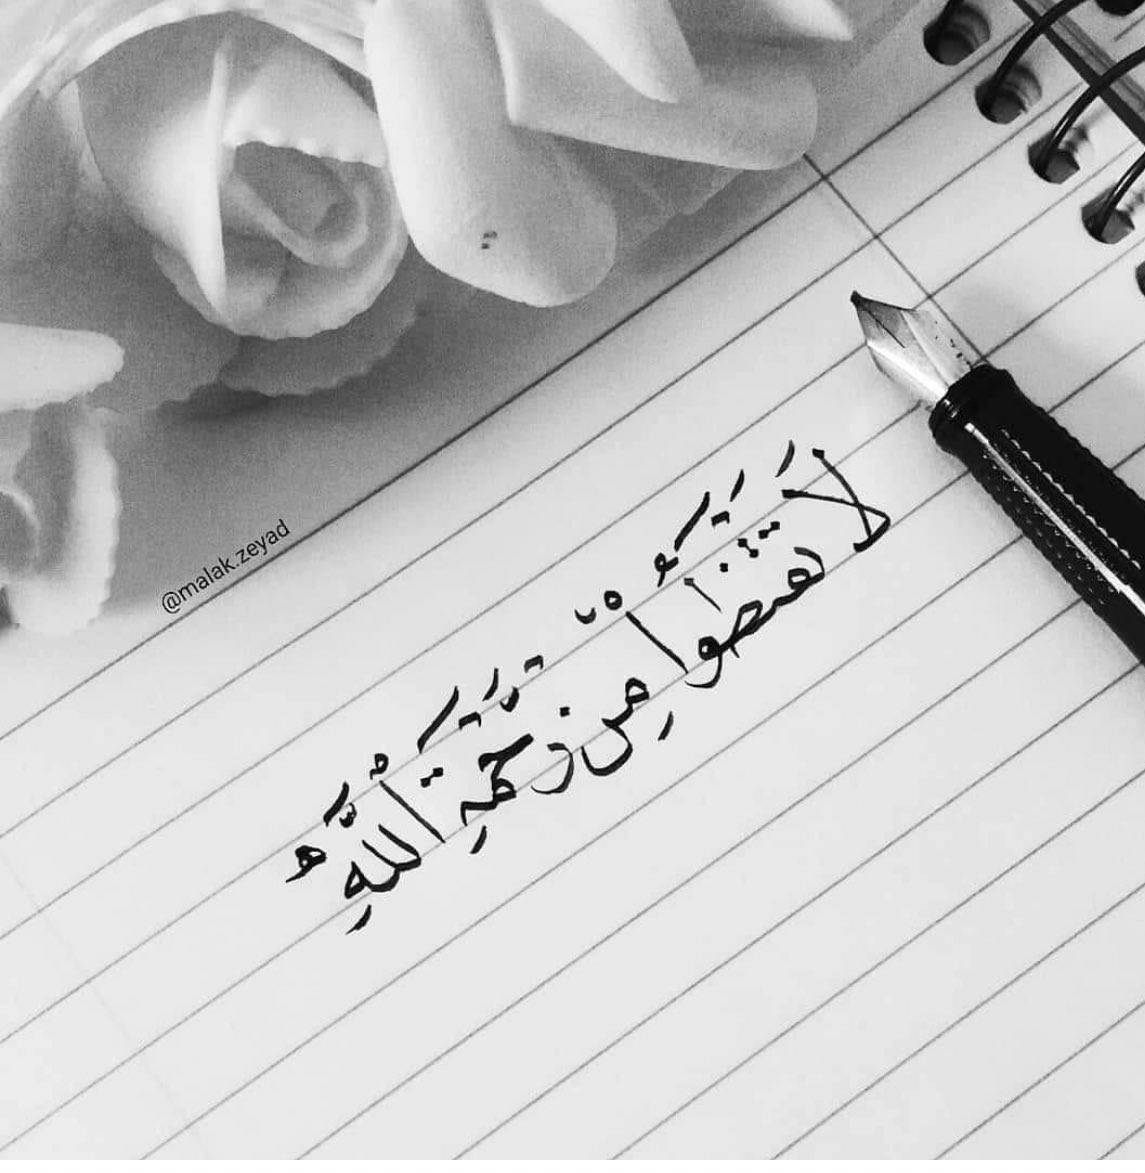 @malak.zeyad
لَا تَقْنَطُوا مِن رَّحْمَةِ اللَّهِ